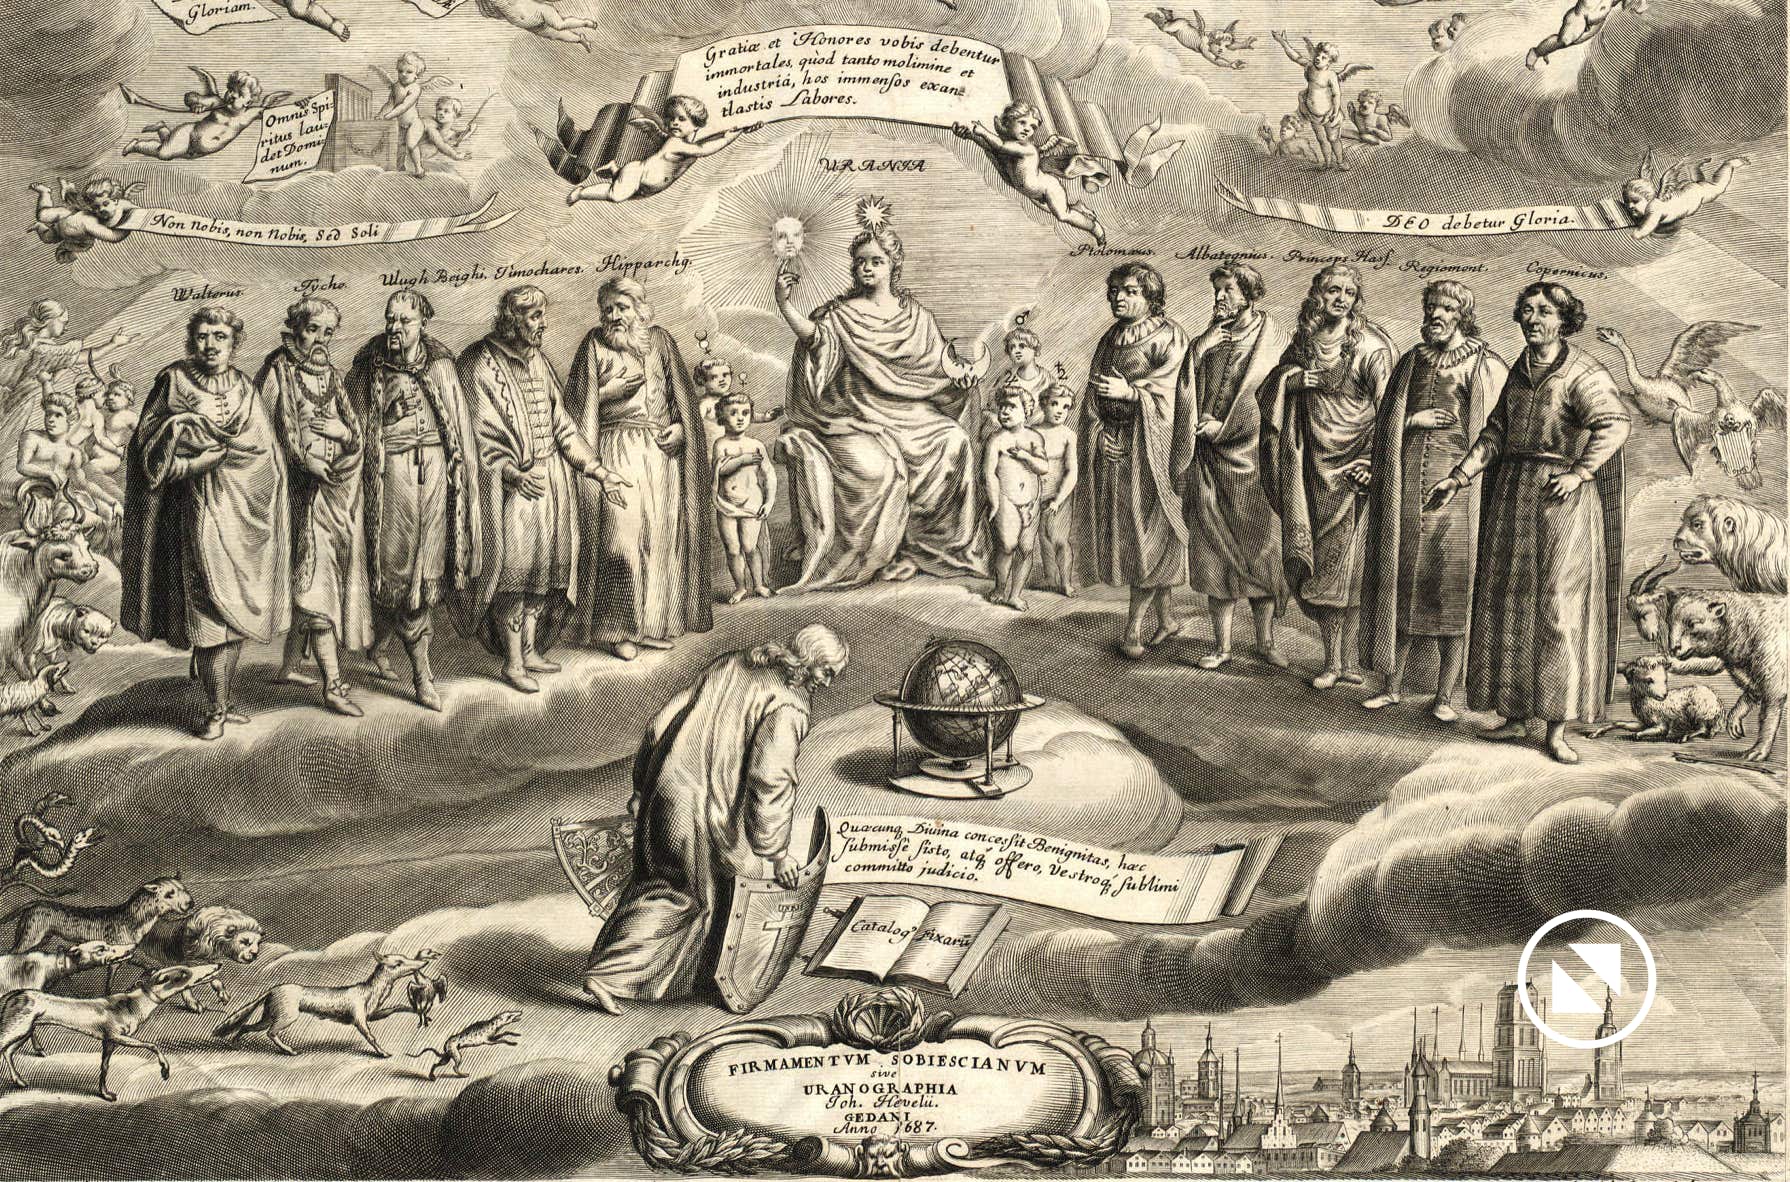 Gloriam.
Gratiæ et Honores vobis debentur
immortales, quòd tanto molimine et
industriâ, hos immensos exan-
tlastis Labores.
Omnis Spi-
ritus lau-
det Domi-
num.
URANIA
Non nobis, non nobis, Sed Soli
DEO debetur Gloria.
Walterus.
Tycho.
Ulugh Beighi.
Timochares.
Hipparchq.
Ptolomæus.
Albategnius.
Princeps Hass.
Regiomont.
Copernicus.
☿
♀
♂
♃
♄
Quæcunq, Divina concessit Benignitas, hæc
submisse sisto, atq, offero, Vestroq, sublimi
committo judicio.
Catalog9 Fixarū
FIRMAMENTVM SOBIESCIANVM
sive
URANOGRAPHIA
Joh. Hevelii.
GEDANI
Anno 1687.